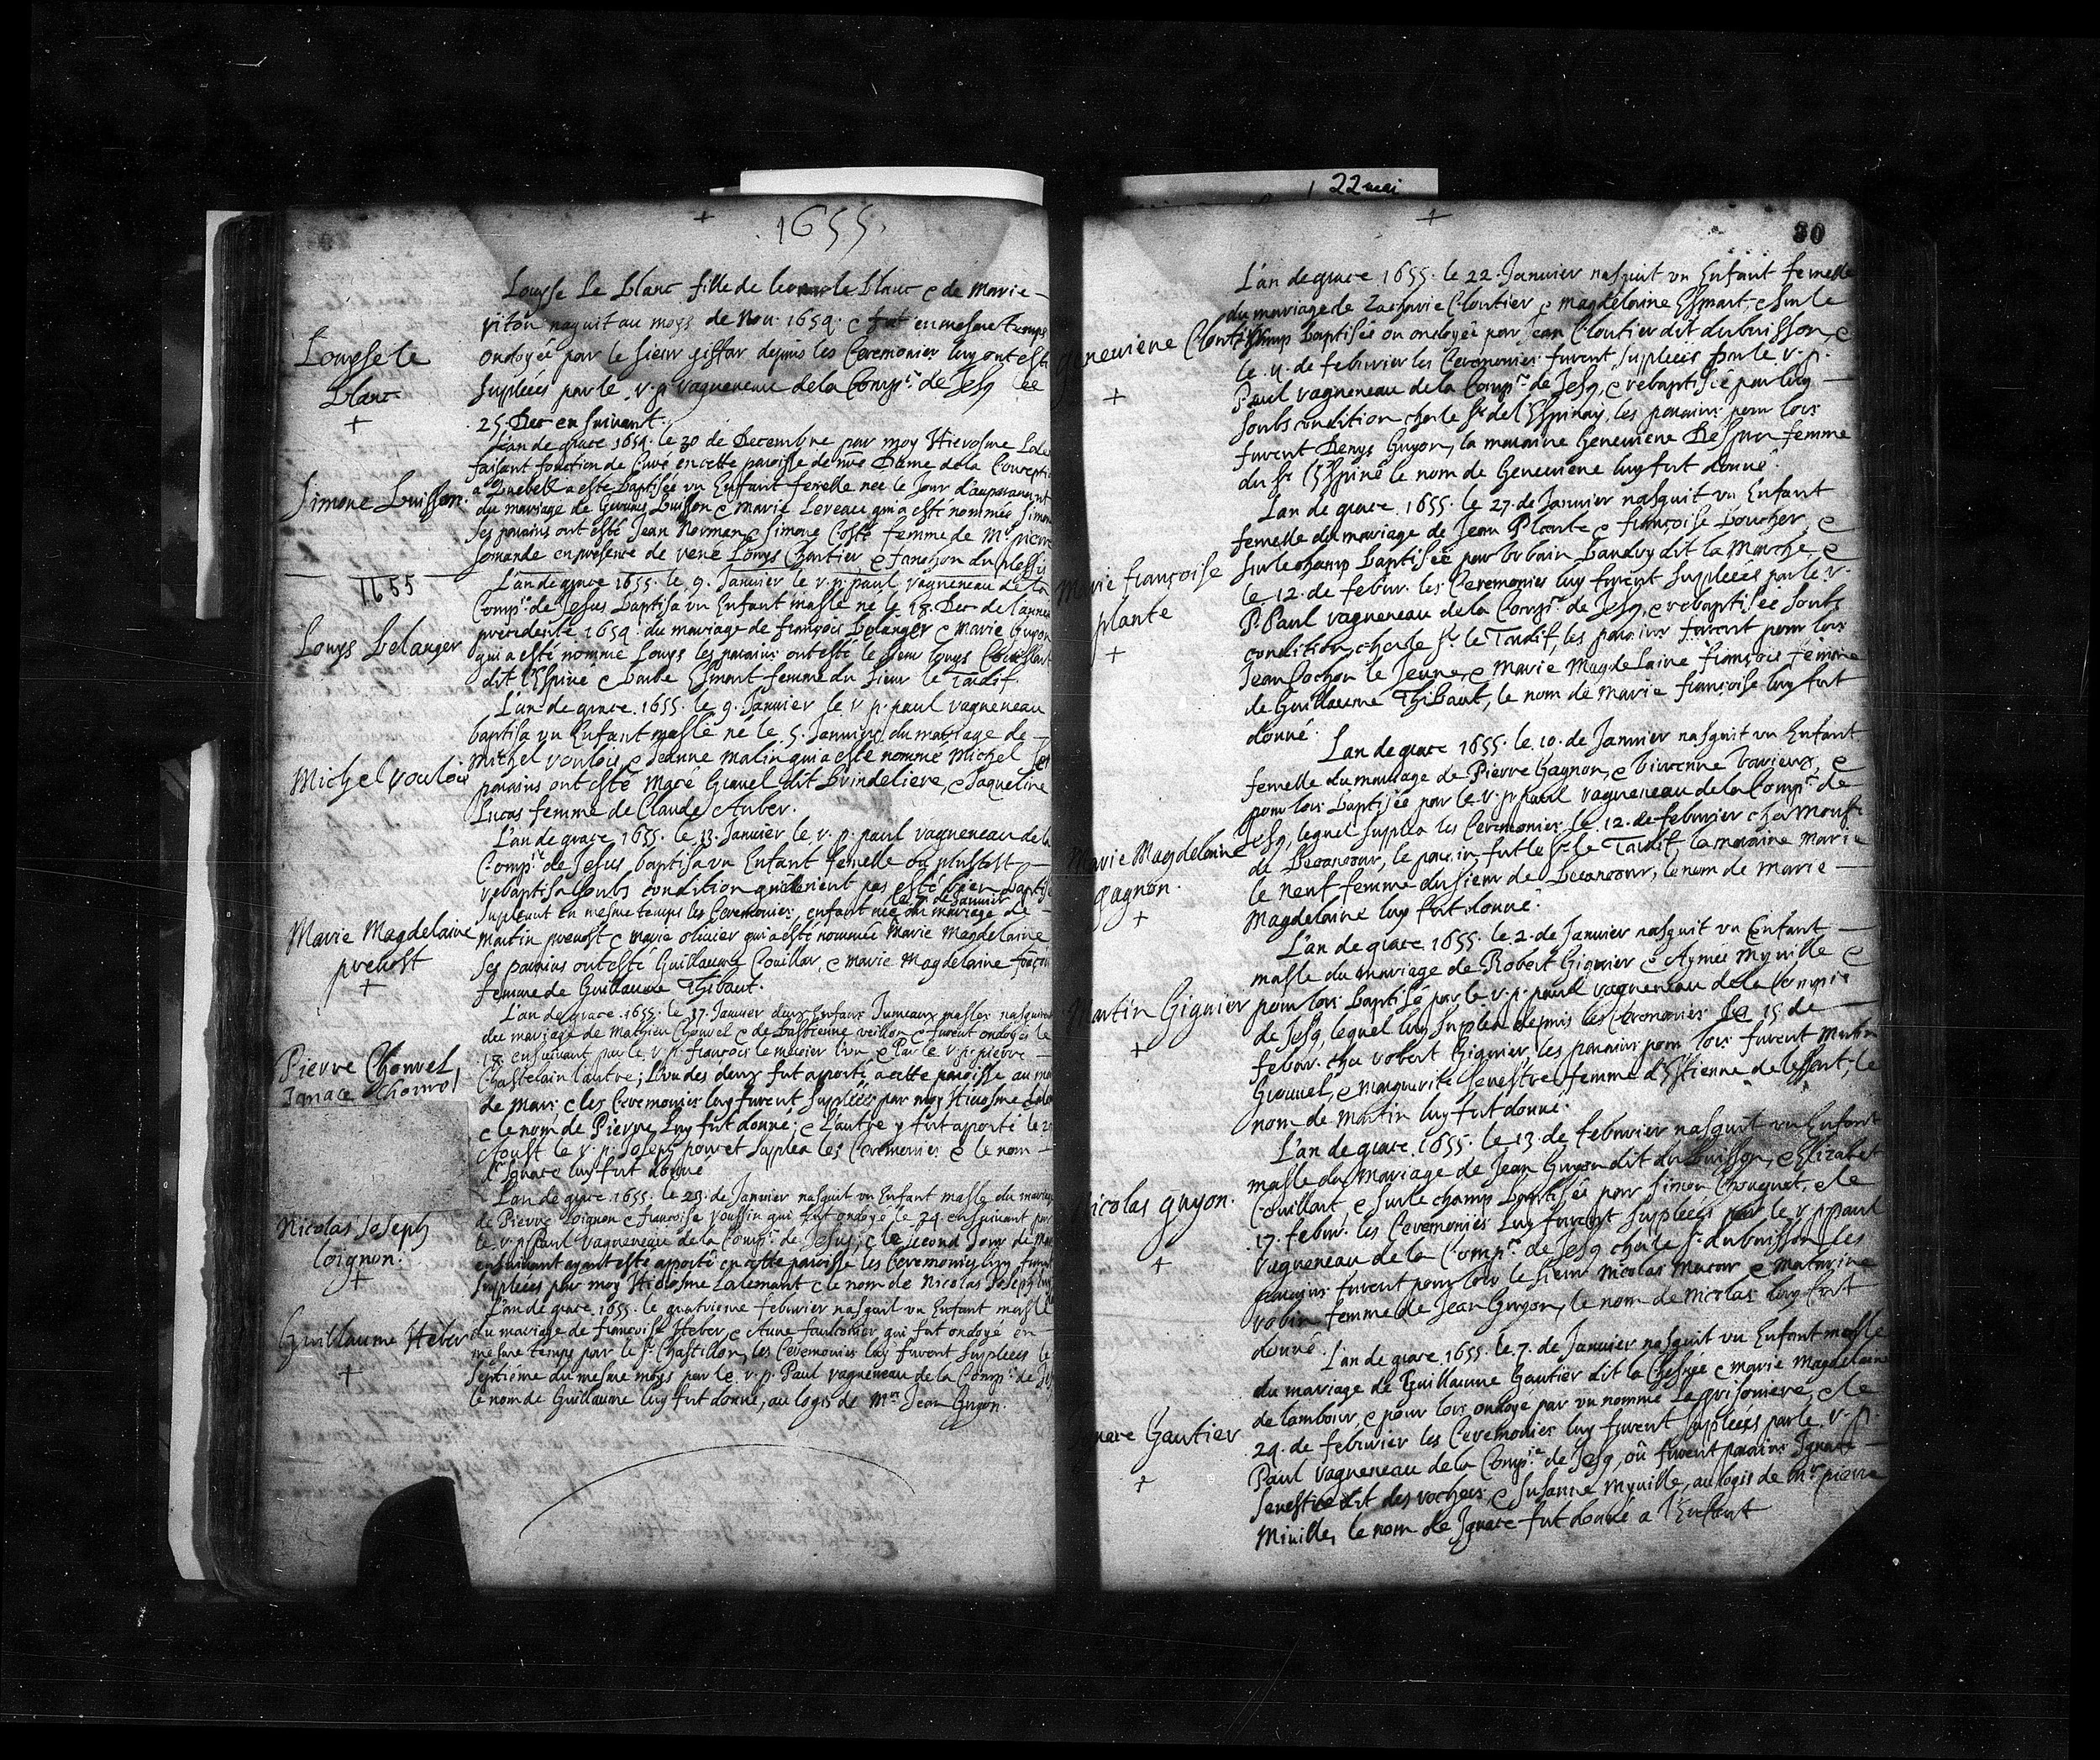 1655.
Louyse Le blanc fille de leonar le blanc e de Marie
riton naquit au moys de Nou. 1654. e fut en mesme temps
ondoyée par le sieur giffar depuis les Ceremonies luy ont esté
Supplées par le r. p. vagueneau de la Comp.ie de Jesq le
25. Dec ensuivant.
Louyse le
blanc
+
L'an de grace 1654. le 30 de Decembre par moy Hierosme Lale
faisant fonction de Curé en cette paroisse de nre Dame de la Concepti
a Quebek a esté baptisée un Enffant femelle née le Jour d'auparavant
du mariage de Gervais buisson e Marie Lereau qui a esté nommée Simone
Ses parains ont esté Jean Norman e Simone Costé femme de Mr pierre
Somande en presence de rené Louys Chartier, e fanchon du plessis
Simone buisson.
1655
L'an de grace 1655. le 9. Janvier le r. p. paul vagueneau de la
Comp.ie de Jesus baptisa un Enfant masle né le 18. Dec de l'année
precedente 1654. du mariage de françois belanger e Marie Guyon
qui a esté nommé Louys les parains ont esté le sieur louys Couillart
dit l'Espiné e barbe Esmart femme du sieur le Tardif
Louys belanger
L'an de grace 1655. le 9. Janvier le r. p. paul vagueneau
baptisa un Enfant masle né le 5. Janvier du mariage de
Michel rouloi e Jeanne Malin qui a esté nommé Michel Ses
parains ont esté Macé Gravel dit brindeliere, e Jaqueline
Lucas femme de Claude Auber.
Michel rouloi
L'an de grace 1655. le 13. Janvier le r. p. paul vagueneau de la
Comp.ie de Jesus baptisa un Enfant femelle ou plustost
rebaptisa soubs condition qu'el n'eut pas esté bien baptisé
le 7. de Janvier
supleant en mesme temps les Ceremonies, enfant née du mariage de
Martin prevost e Marie olivier qui a esté nommée Marie Magdelaine
Ses parains ont esté Guillaume Couillar, e Marie Magdelaine françoi
femme de Guillaume Thibaut.
Marie Magdelaine
prevost
+
L'an de grace 1655. le 17. Janvier deux Enfans Jumeaux masles nasquirent
du mariage de Mathieu Chourel e de Bastienne veillon e furent ondoyés le
18. ensuivant par le r. p. françois le mercier l'un e Par le r. p. pierre
Chastelain l'autre; L'un des deux fut apporté a cette paroisse au moi
de Mars e les Ceremonies luy furent supléés par moy Hierosme Lale
e le nom de Pierre luy fut donné; e L'autre y fut apporté le 2
Aoust le r. p. Joseph poncet supplea les Ceremonies e le nom
d'Ignace luy fut donné
Pierre Chourel
Ignace Chourel
L'an de grace 1655. le 23. de Janvier nasquit un Enfant masle du mariage
de Pierre loignon e françoise roussin qui fut ondoyé le 24 ensuivant par
le r. p. Paul vagueneau de la Comp.ie de Jesus; e le second Jour de Mar
ensuivant ayant esté apporté en cette paroisse les Ceremonies luy furent
supleées par moy Hierosme Lalemant e le nom de Nicolas Joseph luy
Nicolas Joseph
loignon.
+
L'an de grace 1655. le quatrieme febvrier nasquit un Enfant masle
du mariage de françoise Heber, e Anne fauconier qui fut ondoyé en
mesme temps par le Sr. Chastillon, les Ceremonies luy furent supleées le
septiéme du mesme moys par le r. p. Paul vagueneau de la Comp.ie de Jes
le nom de Guillaume luy fut donné, au logis de Mr. Jean Guyon.
Guillaume Heber
+
22 mai
30
L'an de grace 1655. le 22. Janvier nasquit un Enfant femelle
du mariage de Zacharie Cloutier e Magdelaine Esmart, e sur le
champ baptisée ou ondoyée par Jean Cloutier dit du buisson, e
le 11. de febvrier les Ceremonies furent supleées par le r. p.
Paul vagueneau de la Comp.ie de Jesq, e rebaptisée par luy
soubs condition chez le Sr. de l'Espinay, les parains pour lors
furent Denys Guyon, la maraine Genevieve Despres femme
du Sr. l'Espiné le nom de Genevieve luy fut donné.
genevieve Cloutier
+
L'an de grace 1655. le 27. de Janvier nasquit un Enfant
femelle du mariage de Jean Plante e françoise boucher, e
sur le champ baptisée par Urbain baudry dit la Marche, e
le 12. de febvr. les Ceremonies luy furent supleées par le r.
P. Paul vagueneau de la Comp.ie de Jesq, e rebaptisée soubs
condition, chez le Sr. le Tardif, les parains furent pour lors
Jean Cochon le Jeune, e Marie Magdelaine françois femme
de Guillaume Thibaut, le nom de Marie françoise luy fut
donné.
Marie françoise
plante
+
L'an de grace 1655. le 10. de Janvier nasquit un Enfant
femelle du mariage de Pierre Gagnon, e Vivienne Varieux, e
pour lors baptisée par le r. p. paul vagueneau de la Comp.ie de
Jesq, lequel supplea les Ceremonies le 12. de febvrier chez Monsr
de Becancour, le parain fut le Sr. le Tardif, la maraine Marie
le Neuf femme du sieur de Becancour, le nom de Marie
Magdelaine luy fut donné.
Marie Magdelaine
gagnon.
+
L'an de grace 1655. le 2. de Janvier nasquit un Enfant
masle du mariage de Robert Giguier e Aymée Myville e
pour lors baptisé par le r. p. paul vagueneau de la Compie
de Jesq, lequel luy suplea depuis les Ceremonies le 15 de
febvr. chez robert Giguier, les parains pour lors furent Martin
Grouvel, e Marguerite senestre femme d'Estienne de lessart, le
nom de Martin luy fut donné.
Martin Giguier
+
L'an de grace 1655. le 13. de febvrier nasquit un Enfant
masle du mariage de Jean Guyon dit du buisson, e Elizabet
Couillart, e sur le champ baptisée par Simon Chouquet, e le
17. febvr. les Ceremonies luy furent supleées par le r. p paul
vagueneau de la Comp.ie de Jesq chez le Sr. du buisson, les
parains furent pour lors le sieur Nicolas Macar e Maturine
robin femme de Jean Guyon, le nom de Nicolas luy fut
donné.
icolas guyon.
+
L'an de grace 1655. le 7. de Janvier nasquit un Enfant masle
du mariage de Guillaume Gautier dit la Chesnée e Marie Magdelaine
de lambour, e pour lors ondoyé par un nommé Legrisoniere, e le
24. de febvrier les Ceremonies luy furent supleées par le r. p.
Paul vagueneau de la Comp.ie de Jesq, où furent parains Ignace
senestre dit des rochers, e susanne Myville, au logis de Mr. pierre
Miville, le nom de Ignace fut donné a l'Enfant
gnace Gautier
+